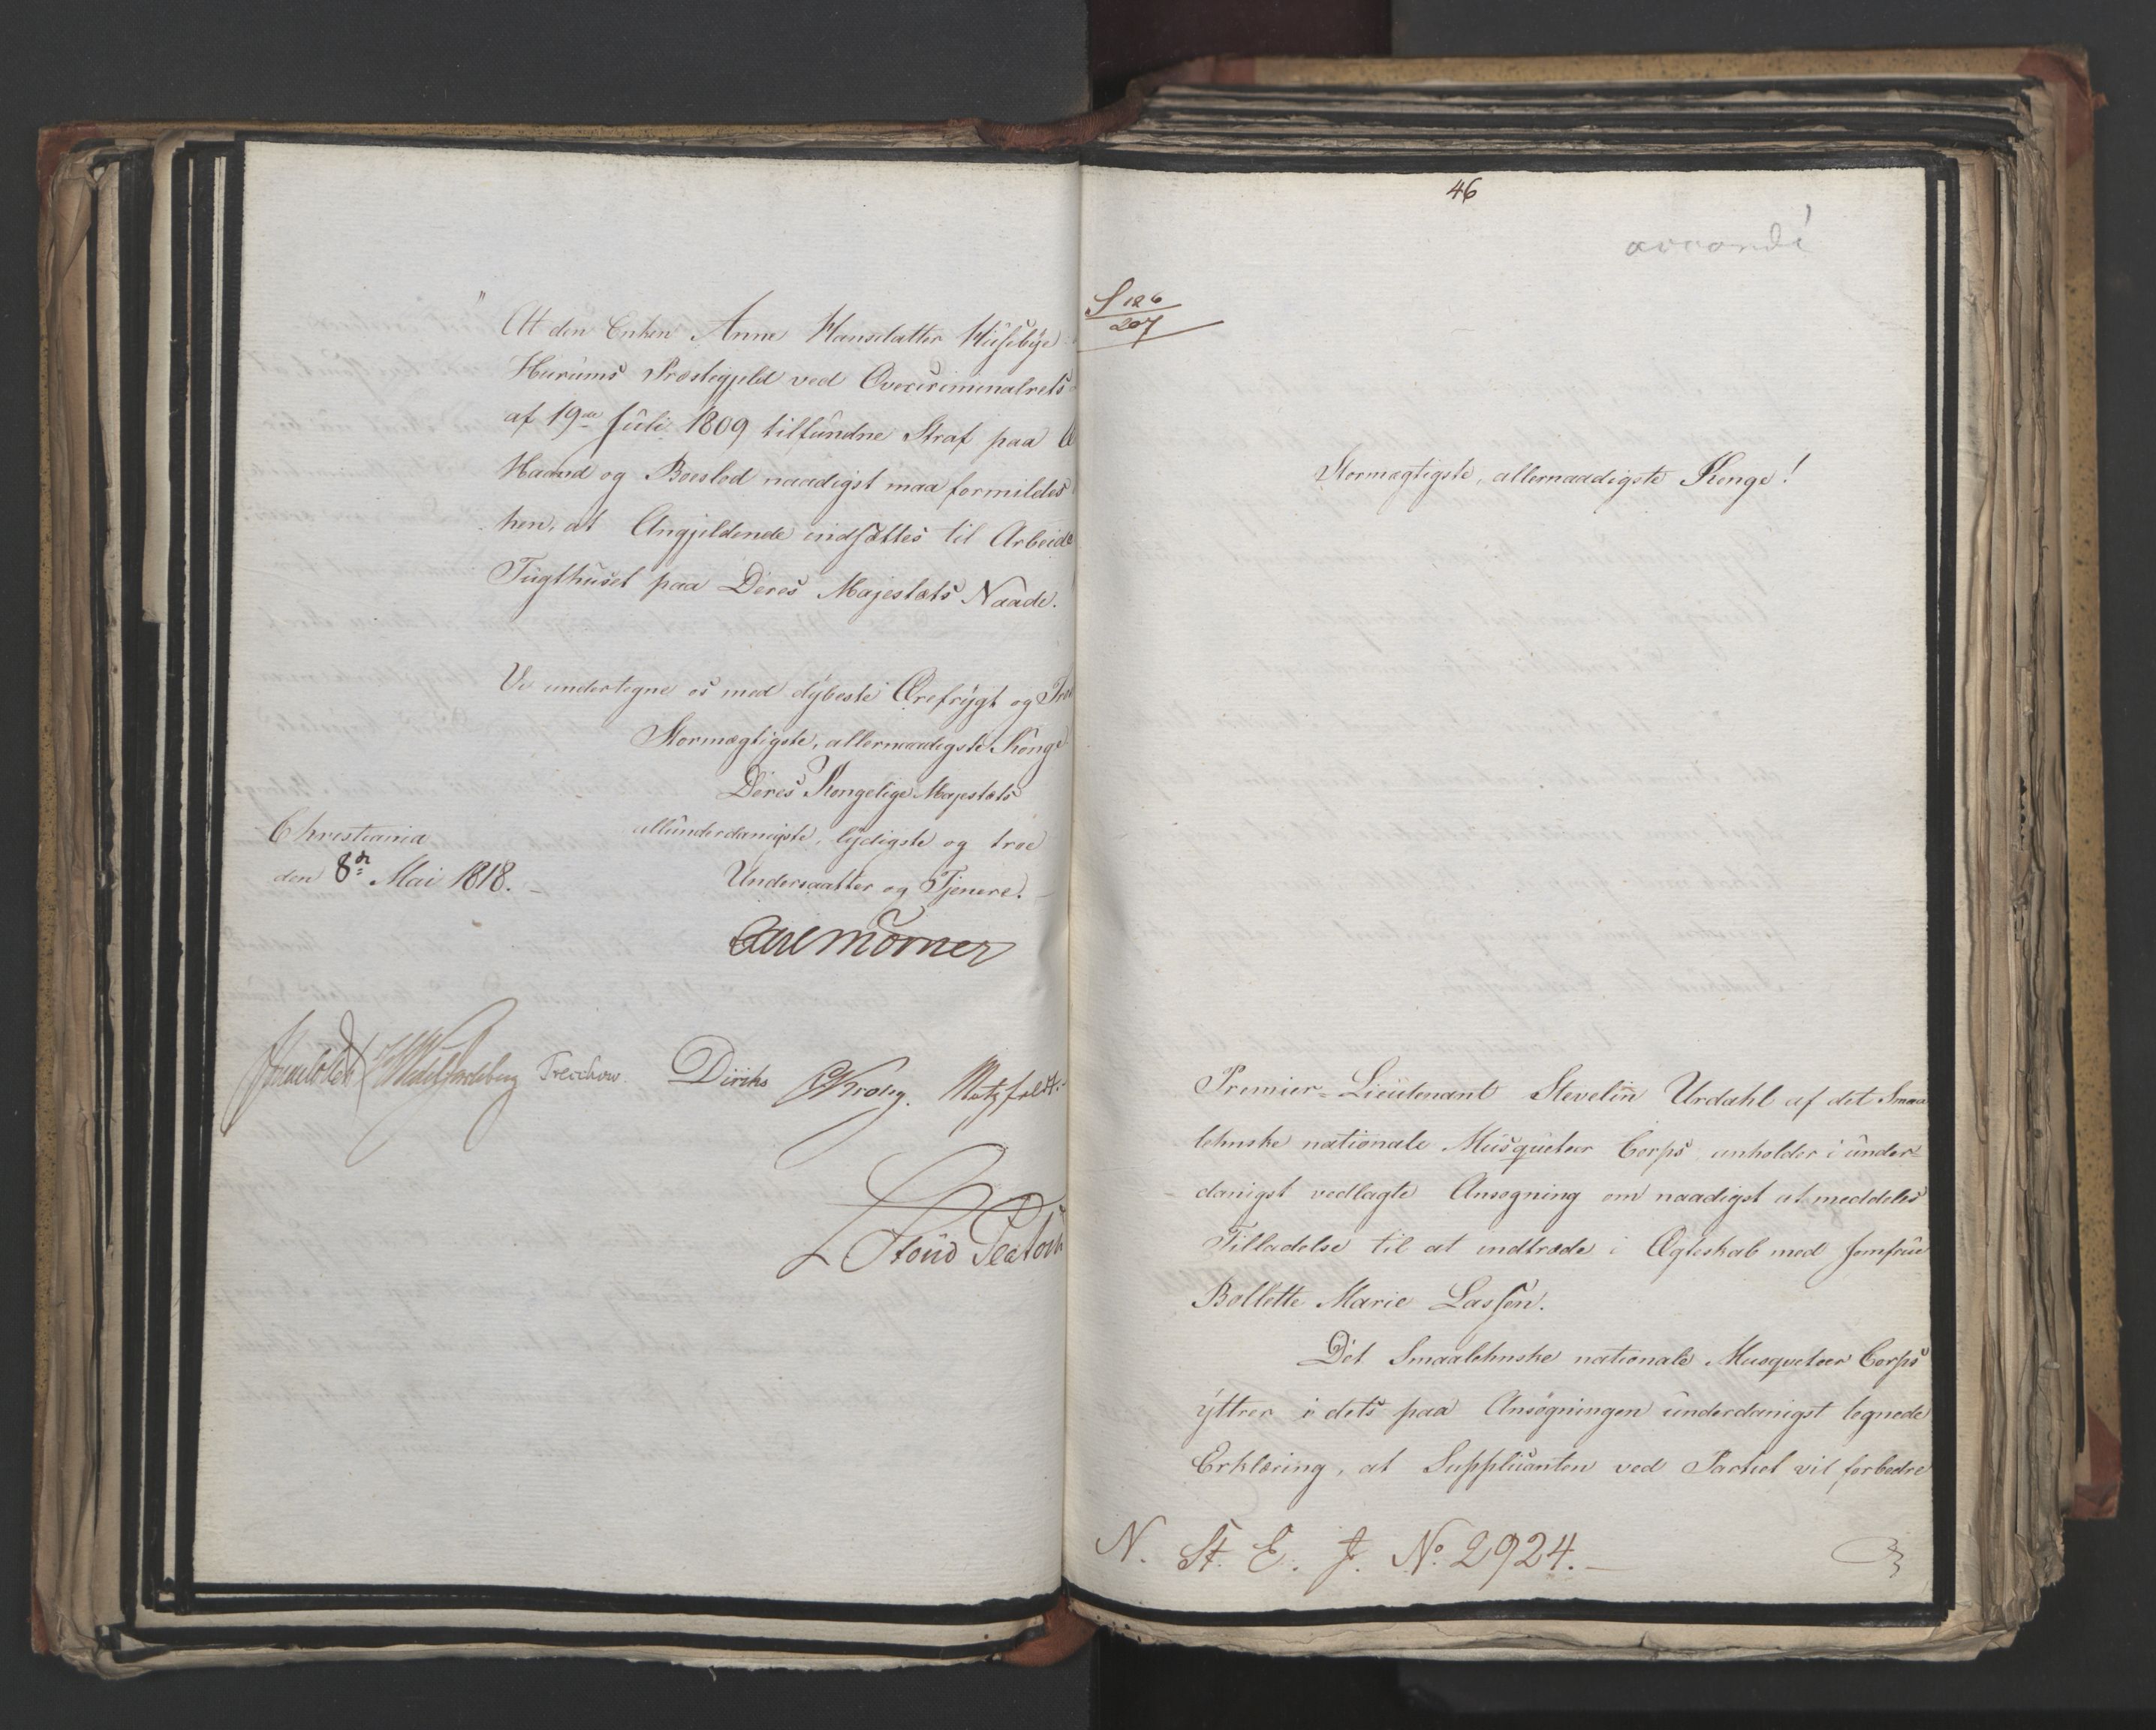 " At den Enken Anne Hansdatter Huseby
Hurums Præstegjeld ved Overcriminalrets
af 19de Juli 1809 tilfundne Straf paa
Haand og Boeslod naadigst maa formildes
hen, at Angjeldende indsættes til Arbeide
Tugthuset paa Deres Majestæts Naade.
Vi undertegne os med dybeste Ærefrygt og
Stormægtigste, allernaadigste Konge
Deres Kongelige Majestæts
allunderdanigste, lydigste og troe
Undersaatter og Tjenere.
Christiania
den 8de Mai 1818.
Carl Mörner
Sommerhielm HWedelJarlsberg Treschow Diriks CKrohg. Motzfeldt
Stoud Platou
46
S 126
207
Stormægtigste, allernaadigste Konge!
Premier-Lieutenant Stevelin Urdahl af det Smaa
lehnske nationale Musqueteer Corps anholder i under-
danigst vedlagte Ansøgning om naadigst at meddeles
Tilladelse til at indtræde i Ægteskab med Jomfrue
Bollette Marie Lassen.
Det Smaalehnske nationale Musqueteer Corps
yttrer i dets paa Ansøgningen underdanigst tegnede
Erklæring, at Supplicanten ved Partiet vil forbedre
N. St. E. J. No. 2924.